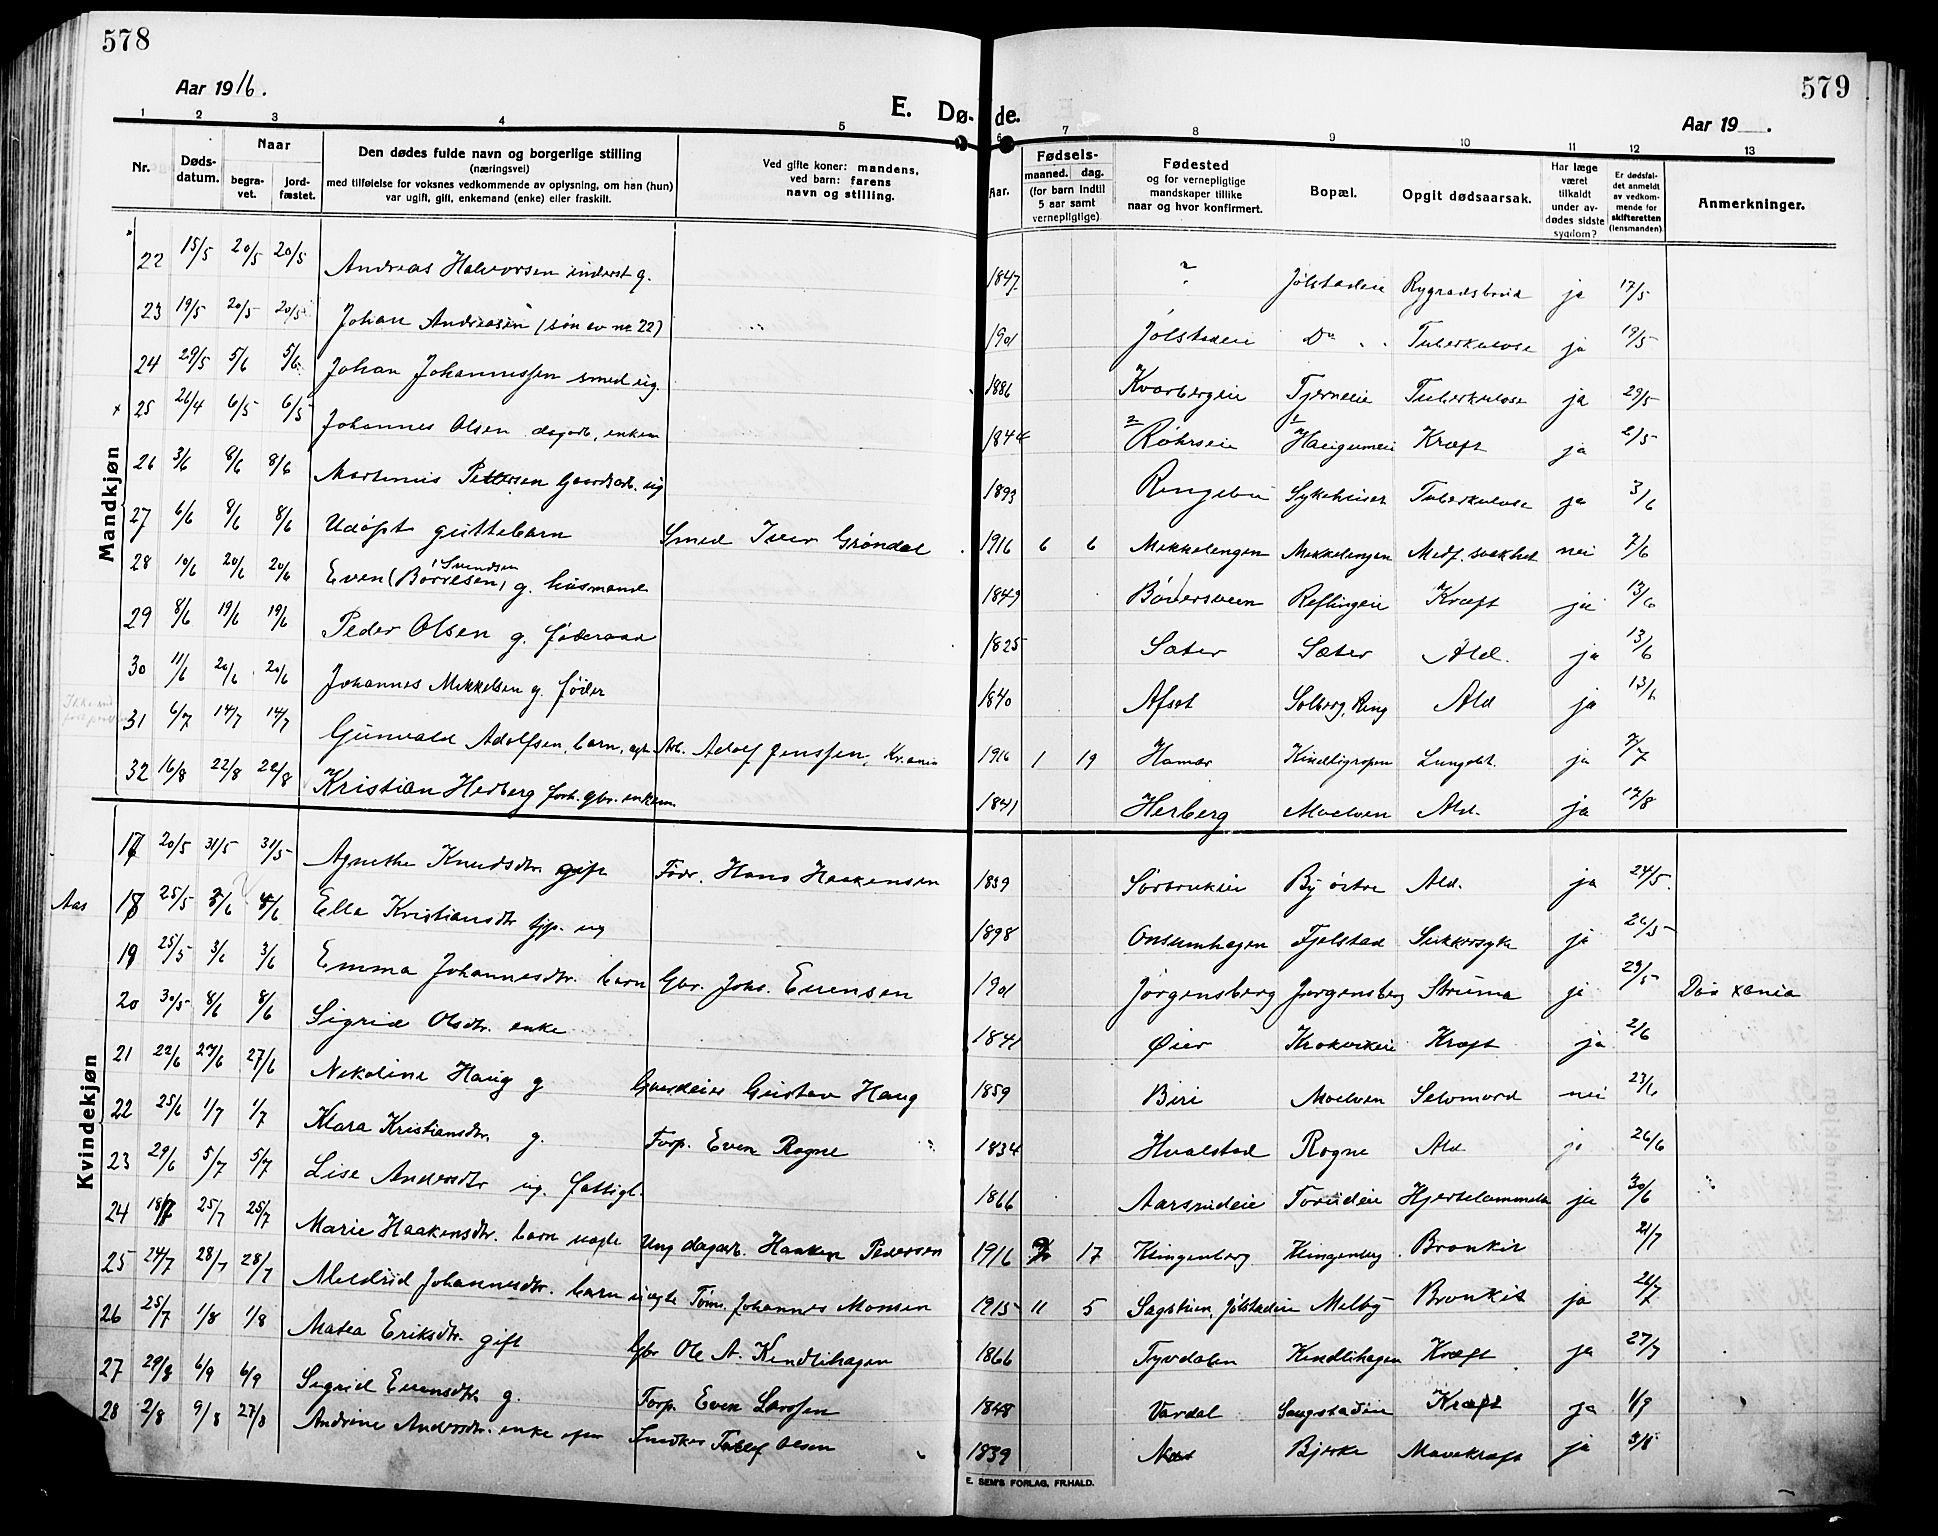 578
579
Aar 1916.
E. Døde.
Aar 19 .
1 2 3 4 5 6 7 8 9 10 11 12 13
Nr. Døds-datum. Naar begra-vet. jord-fæstet. Den dødes fulde navn og borgerlige stilling (næringsvei) med tilføielse for voksnes vedkommende av oplysning, om han (hun) var ugift, gift, enkemand (enke) eller fraskilt. Ved gifte koner: mandens, ved barn: farens navn og stilling. Aar. Fødsels- maaned. dag. (for barn indtil 5 aar samt vernepligtige) Fødested og for vernepligtige mandskaper tillike naar og hvor konfirmert. Bopæl. Opgit dødsaarsak. Har læge været tilkaldt under av-dødes sidste sygdom? Er dødsfal-det anmeldt av vedkom-mende for skifteretten (lensmanden) Anmerkninger.
Mandkjøn
22 15/5 20/5 20/5 Andreas Halvorsen inderst g. 1847 ? Jølstadeie Rygradsbrud ja 17/5
23 19/5 20/5 20/5 Johan Andreasen (søn av nr 22) 1901 Jølstadeie Do Tuberkulose ja 19/5
24 29/5 5/6 5/6 Johan Johannessen smed ug. 1886 Kvarbergeie Tjerneie Tuberkulose ja 29/5
x 25 26/4 6/5 6/5 Johannes Olsen dagarb. enkem 1844 Røhrseie Haugumeie Kræft ja 2/5
26 3/6 8/6 8/6 Martinius Pettersen Gaardsarb. ug 1893 Ringebu Sykehuset Tuberkulose ja 3/6
27 6/6 8/6 8/6 Udøpt guttebarn Smed Iver Grøndal 1916 6 6 Mikkelengen Mikkelengen Medf. svakhed nei 7/6
28 10/6 20/6 20/6 Even (Børresen) Svendsen g. husmand 1849 Bøverseien Reflingeie Kræft ja 13/6
29 8/6 19/6 19/6 Peder Olsen g. føderaad 1825 Sæter Sæter Ald. ja 13/6
30 11/6 20/6 20/6 Johannes Mikkelsen g. føder 1840 Afset Solberg, Ring Ald ja 13/6
31 6/7 14/7 14/7 Gunvald Adolfsen, barn, egte Arb. Adolf Jenssen, Kr.ania 1916 1 19 Hamar Kindligropen Lungebet. ja 7/7
32 16/8 22/8 22/8 Kristian Herberg forh. gbr. enkem 1841 Herberg Moelven Ald. ja 17/8
Kvindekjøn
17 20/5 31/5 31/5 Agnethe Knudsdtr. gift Fødr. Hans Haakensen 1839 Sørbrukeie By østre Ald. ja 24/5
Aas 18 25/5 3/6 4/6 Ella Kristiansdtr. tjp. ug 1898 Onsumhagen Fjelstad Sukkersyke ja 26/5
19 25/5 3/6 3/6 Emma Johannesdtr. barn Gbr. Johs. Evensen 1901 Jørgensberg Jørgensberg Struma ja 29/5 Døs xania
20 30/5 8/6 8/6 Sigrid Olsdtr. enke 1841 Øier Krokvikeie Kræft ja 2/6
21 22/6 27/6 27/6 Nikoline Haug g Gaardeier Gustav Haug 1859 Biri Moelven Selvmord nei 23/6
22 25/6 1/7 1/7 Klara Kristiansdtr. g. Forp. Even Rogne 1834 Hvalstad Rogne Ald ja 26/6
23 29/6 5/7 5/7 Lise Andersdtr ug. fattigl. 1866 Aarsrudeie Torudeie Hjertelammelse ja 30/6
24 18/7 25/7 25/7 Marie Haakensdtr. barn uegte Ung dagarb. Haaken Pedersen 1916 17 Klingenberg Klingenberg Bronkit 21/7
25 24/7 28/7 28/7 Meldrid Johannesdtr. barn uegte Tøm. Johannes Monsen 1915 11 5 Sagstuen, Jølstadeie Melby Bronkit ja 26/7
26 25/7 1/8 1/8 Matea Eriksdtr. gift Gbr Ole A. Kindlihagen 1866 Tyvdalen Kindlihagen Kræft ja 27/7
27 29/8 6/9 6/9 Sigrid Evensdtr. g. Forp. Even Larssen 1848 Vardal Saugstadeie Kræft ja 1/9
28 2/8 9/8 27/8 Andrine Andersdtr. enke efter Snedker Tollef Olsen 1839 Næs Bjerke Mavekræft ja 3/8
E. SEM'S FORLAG, FR.HALD.